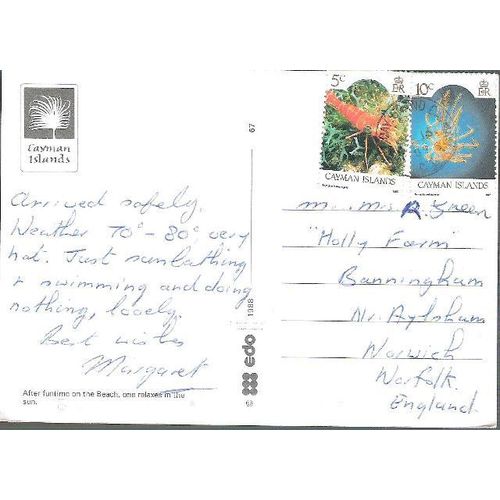 Cayman
Islands
Arrived safely.
Weather 70° - 80° very
hot. Just sunbathing
+ swimming and doing
nothing, lovely.
Best wishes
Margaret
After funtime on the Beach, one relaxes in the
sun.
67
1988
edo
68
5c
ER
CAYMAN ISLANDS
10c
ER
CAYMAN ISLANDS
Mr. Mrs R. Green
"Holly Farm"
Banningham
Nr. Aylsham
Norwich
Norfolk.
England.